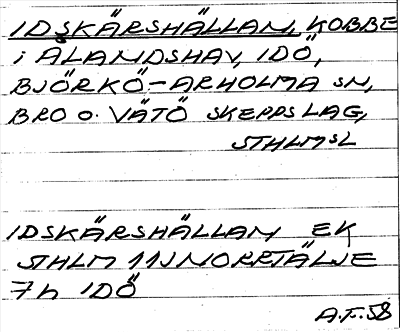 IDSKÄRSHÄLLAN, KOBBE
i ÅLANDSHAV, IDÖ,
BJÖRKÖ-ARHOLMA SN,
BRO O. VÄTÖ SKEPPSLAG,
STHLMSL
IDSKÄRSHÄLLAN EK
STHLM 11J NORRTÄLJE
7h IDÖ
A.F. 58